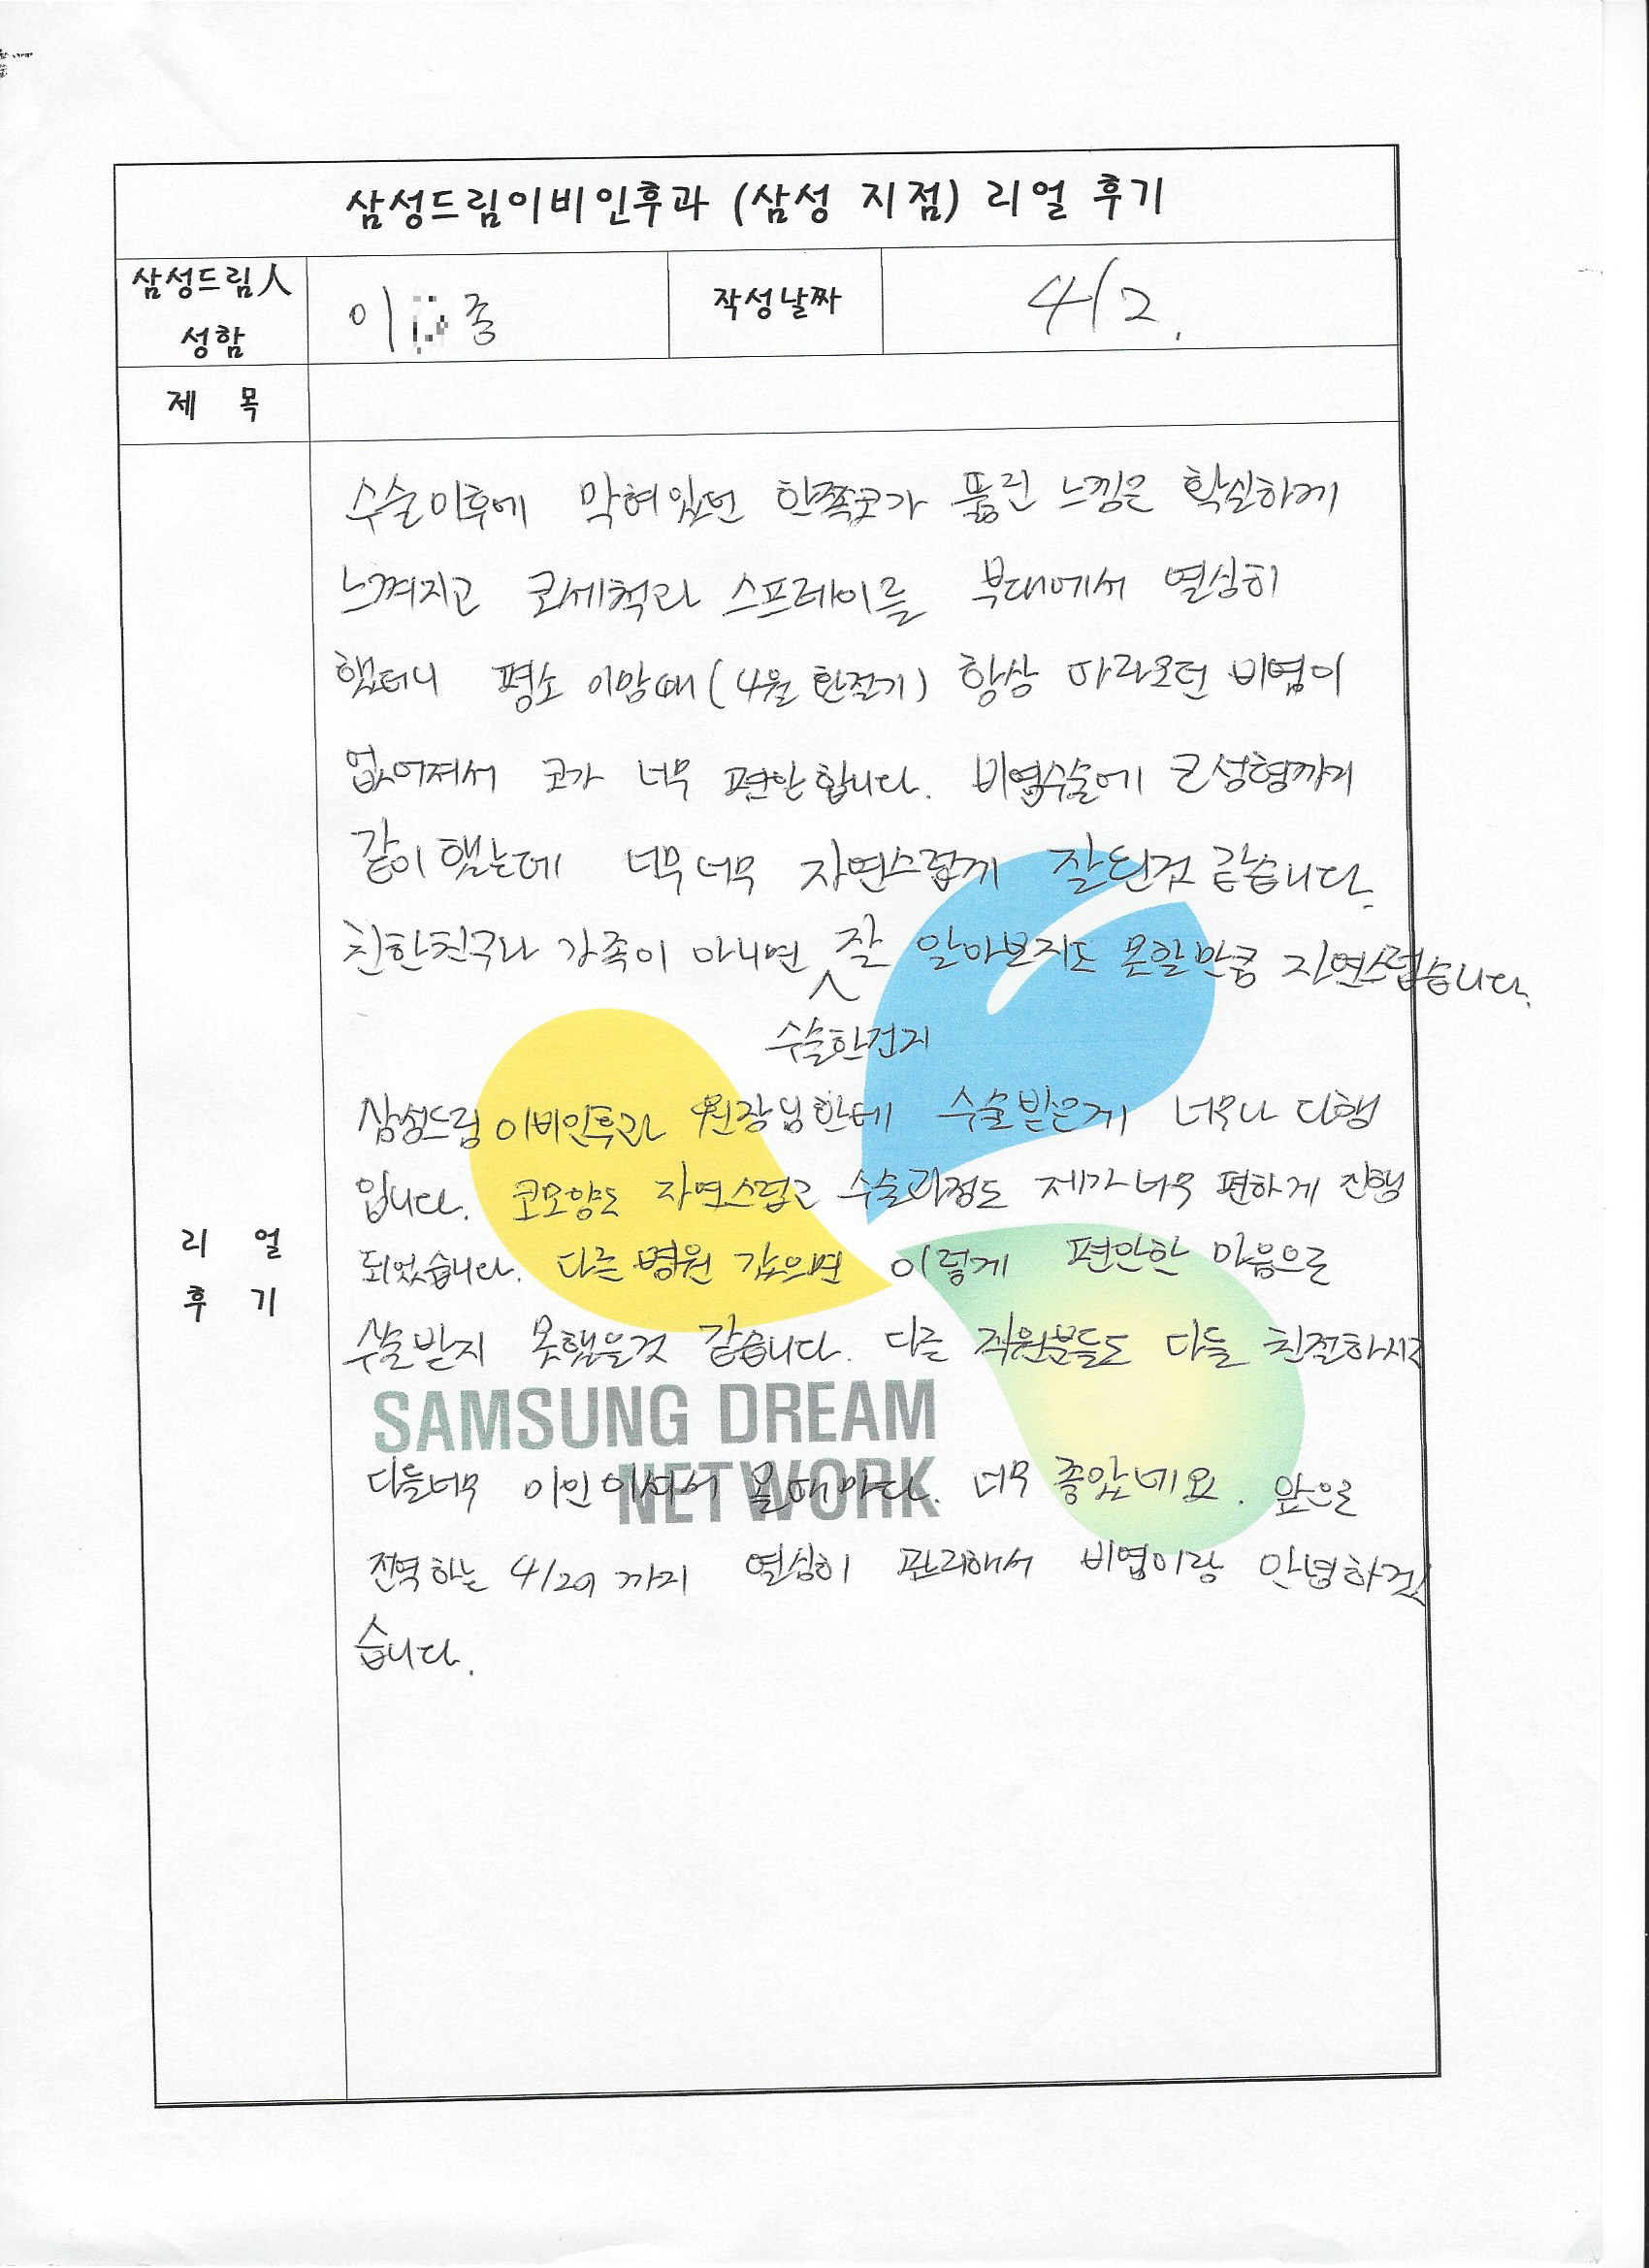 삼성드림이비인후과 (삼성 지점) 리얼 후기
삼성드림人
성함
이 종
작성날짜
4/2.
제 목
수술이후에 막혀있던 한쪽코가 뚫린 느낌은 확실하게
느껴지고 코세척과 스프레이를 부대에서 열심히
했더니 평소 이맘때(4월 환절기) 항상 따라오던 비염이
없어져서 코가 너무 편안합니다. 비염수술에 코성형까지
같이했는데 너무너무 자연스럽게 잘된것 같습니다.
친한친구나 가족이 아니면 잘 알아보지도 못할만큼 자연스럽습니다.
수술한건지
삼성드림이비인후과 원장님한테 수술받은게 너무나 다행
입니다. 코모양도 자연스럽고 수술과정도 제가 너무 편하게 진행
되었습니다. 다른 병원 갔으면 이렇게 편안한 마음으로
수술받지 못했을것 같습니다. 다른 직원분들도 다들 친절하시고
SAMSUNG DREAM
다들너무 미인이셔서 올때마다. 너무 좋았네요. 앞으로
NETWORK
전역하는 4/29까지 열심히 관리해서 비염이랑 안녕하겠
습니다.
리 얼
후 기